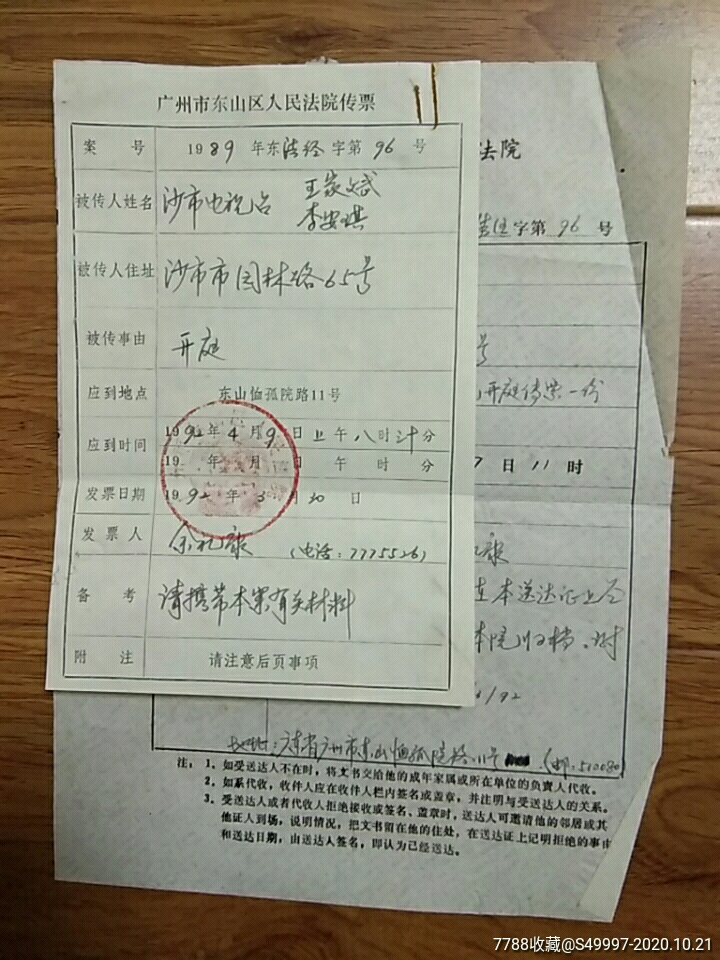 广州市东山区人民法院传票
案 号 1989年东法经字第96号
被传人姓名 沙市电视台 王家斌
李安琪
被传人住址 沙市市园林路65号
被传事由 开庭
应到地点 东山恤孤院路11号
应到时间 1992年4月9日上午八时卅分
19 年 月 日 午 时 分
发票日期 1992年3月30日
发票人 余 (电话:7775526)
备 考 请携带本案有关材料
附 注 请注意后页事项
法院
字第96号
号
开庭传票一份
7日11时
在本送达证上签
本院归档、附
/92
地址:广东省广州市东山恤孤院路11号 (邮:510080
注:1、如受送达人不在时,将文书交给他的成年家属或所在单位的负责人代收。
2、如系代收,收件人应在收件人栏内签名或盖章,并注明与受送达人的关系。
3、受送达人或者代收人拒绝接收或签名、盖章时,送达人可邀请他的邻居或其
他证人到场,说明情况,把文书留在他的住处,在送达证上记明拒绝的事由
和送达日期,由送达人签名,即认为已经送达。
7788收藏@S49997-2020.10.21